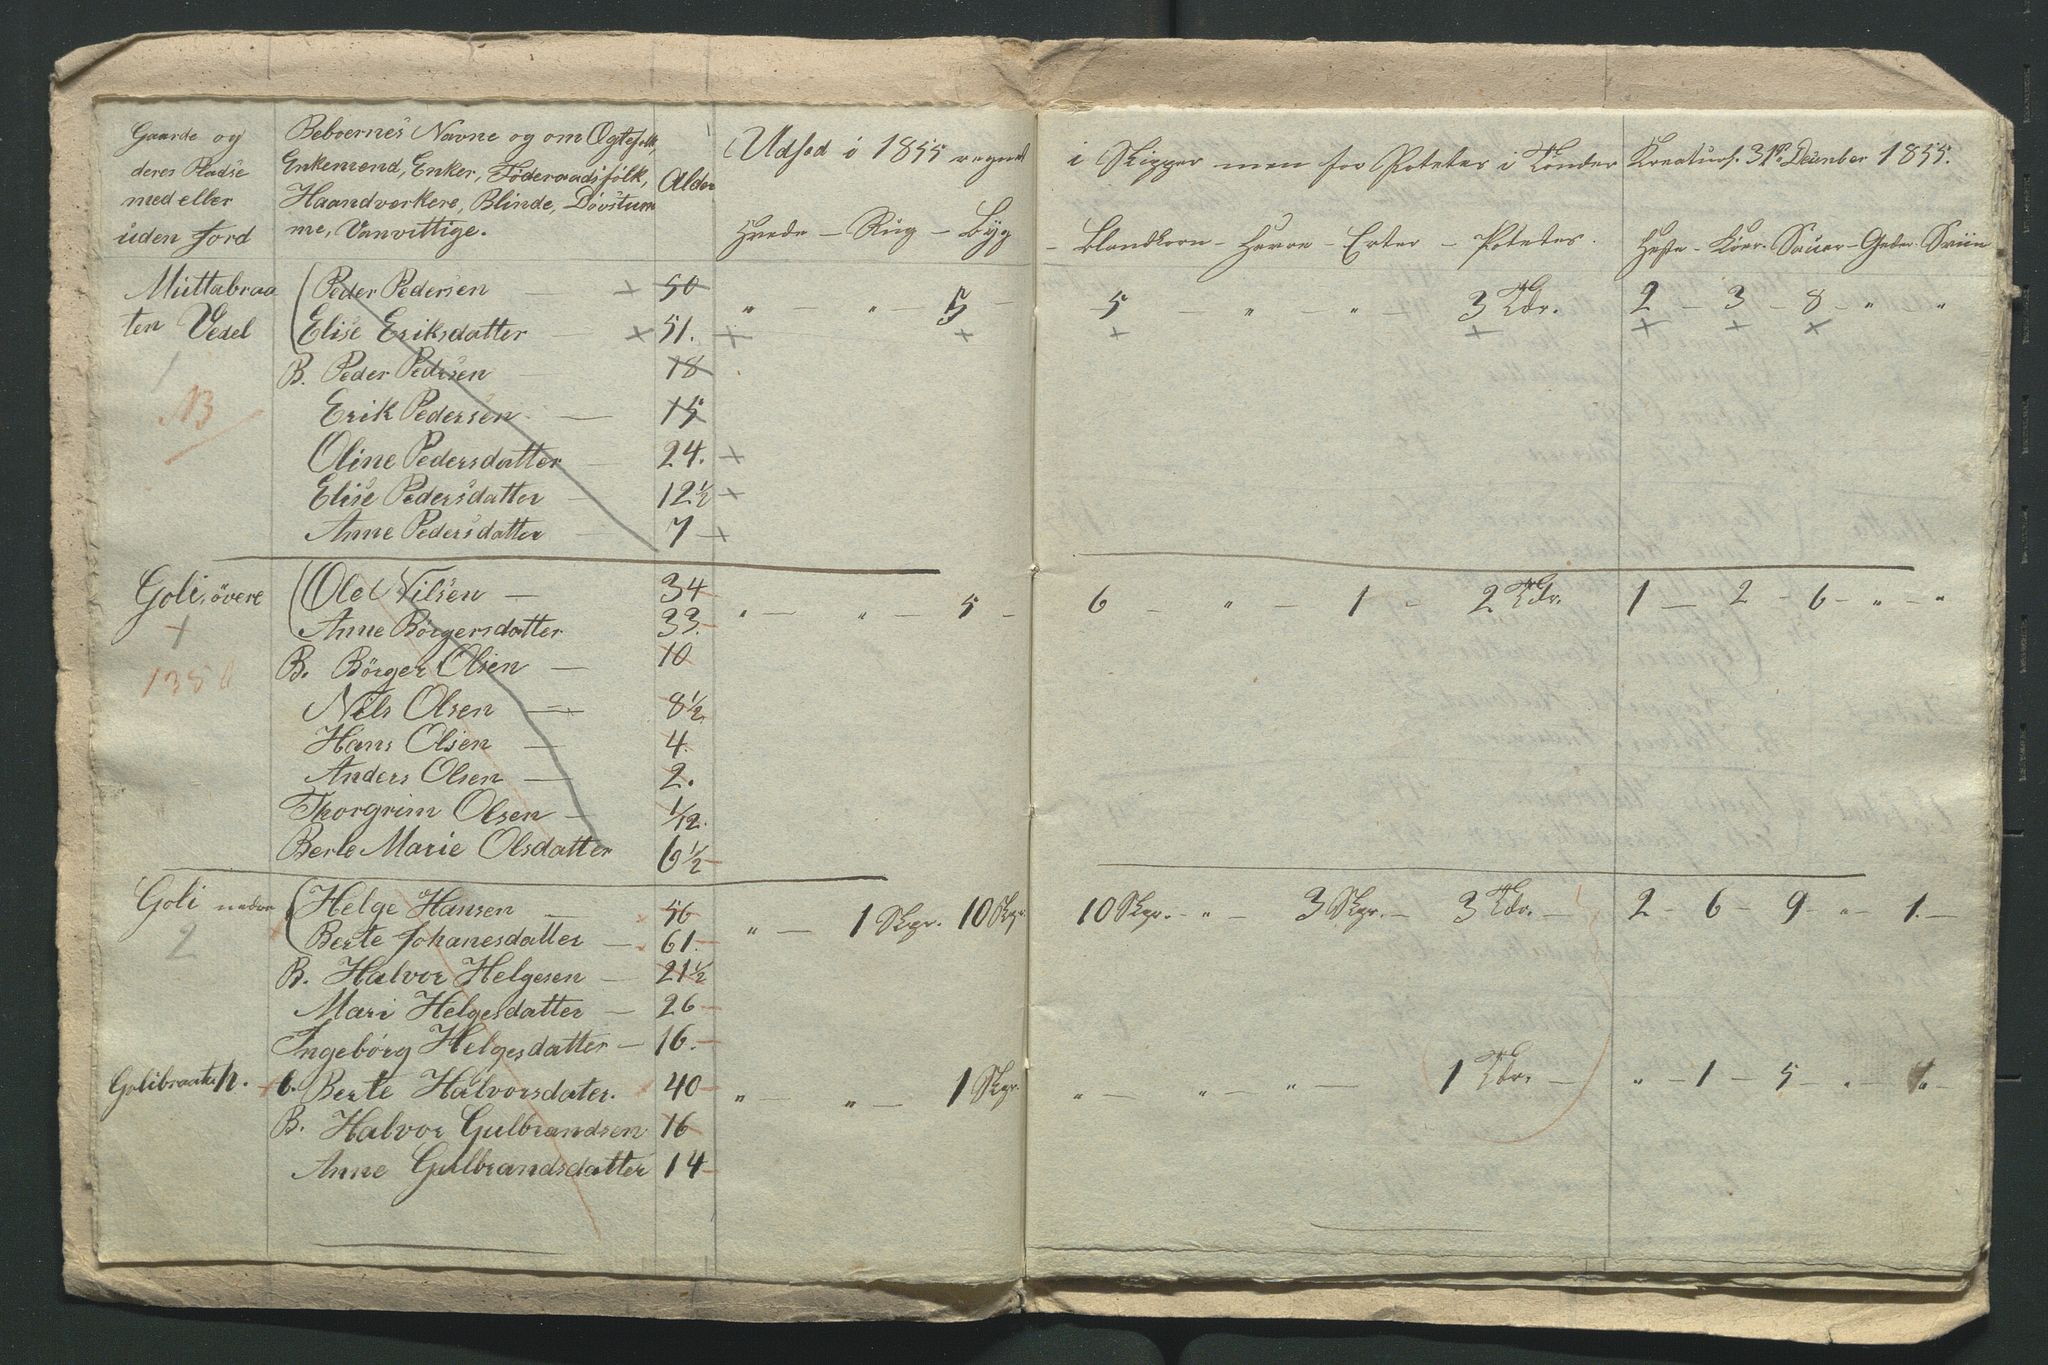 Gaarde og
deres Pladse
med eller
uden Jord
Beboernes Navne og om Ogtefolk,
Enkemend, Enker, Föderaadsfolk,
Haandverkere, Blinde, Dövstum
me, Vanvittige.
Alder
Udsed i 1855 regnet
Hvede - Rug - Byg
i Skipper men for Poteter i Tönder
- Blandkorn - Havre - Erter - Poteter.
Kreaturs. 31te December 1855.
Heste - Köer. Sauer - Geder. Sviin
Muttabraa
ten Vedel
1
NB
Peder Pedersen — + 50
Elise Eriksdatter — + 51. +
" — " — 5 — 5 — " — " — 3 Tdr. 2 — 3 — 8 — " "
+ + + + + +
B. Peder Pedersen — 18
Erik Pedersen — 15
Oline Pedersdatter — 24. +
Elise Pedersdatter — 12½ +
Anne Pedersdatter — 7 +
Goli, övere
+
135 b
Ole Nilsen — 34
Anne Börgersdatter 33.
" — " — 5 — 6 — " — 1 — 2 Tdr. 1 — 2 — 6 — " — "
B. Börger Olsen — 10
Nils Olsen — 8½
Hans Olsen — 4.
Anders Olsen — 2.
Thorgrim Olsen — 1/12.
Berte Marie Olsdatter 6½
Goli nedre
2
Helge Hansen — 56
Berte Johanesdatter — 61.
" — 1 Skpr. 10 Skpr 10 Skpr. — " — 3 Skpr. — 3 Tdr. — 2 — 6 — 9 — " — 1. —
B. Halvor Helgesen — 21½
Mari Helgesdatter — 26
Ingebörg Helgesdatter — 16.
Golibraaten. b. Berte Halvorsdater. 40 " — " — 1 Skpr. " — " — " — 1 Tdr. — " — 1 — 5 — " — 1. —
B. Halvor Gulbrandsen 16
Anne Gulbrandsdatter 14